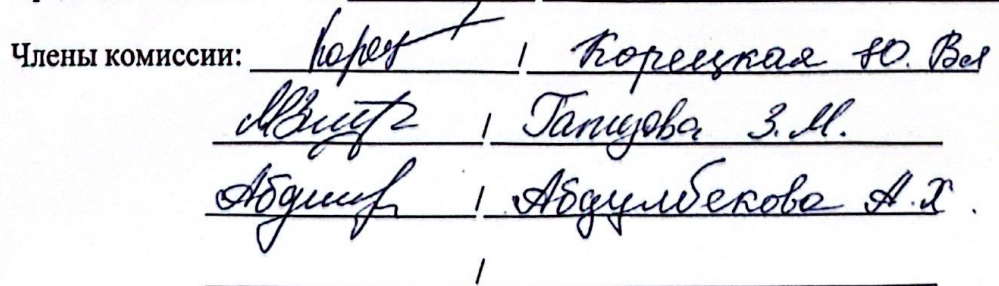 Члены комиссии: / Корецкая Ю. Вл
/ Гапизова З.М.
/ Абдулбекова А.Х.
/